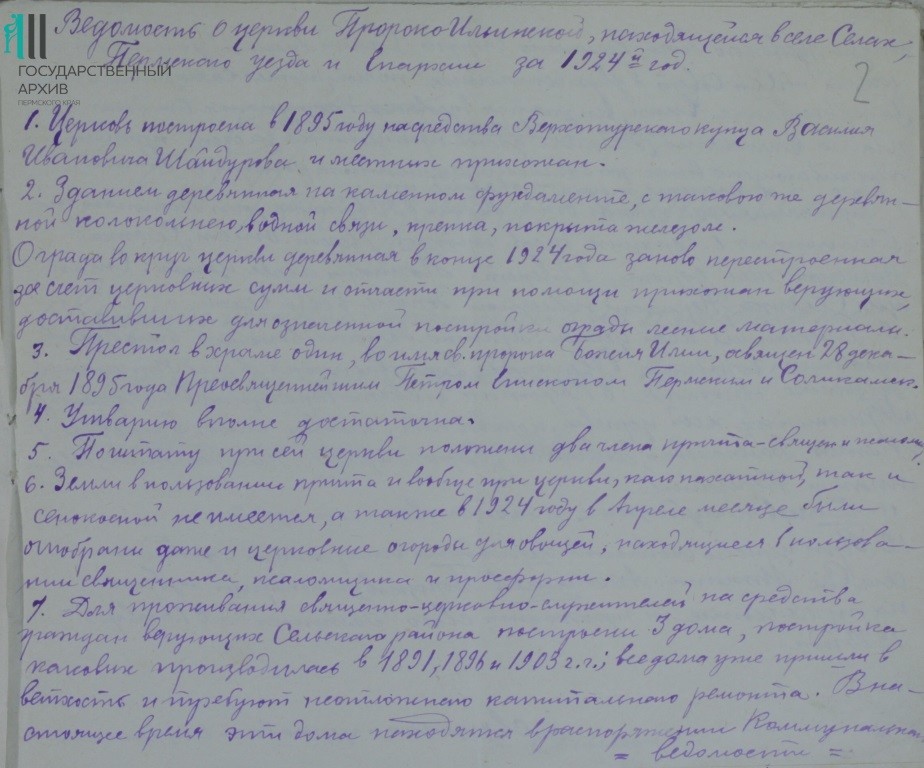 ГОСУДАРСТВЕННЫЙ
АРХИВ
ПЕРМСКОГО КРАЯ
2
Ведомость о церкви Пророко Ильинской, находящейся в селе Селах,
Пермского уезда и Епархии за 1924й год.
1. Церковь построена в 1895 году на средства Верхотурского купца Василия
Ивановича Шайдурова и местных прихожан.
2. Зданием деревянная на каменном фундаменте, с таковою же деревян-
ной колокольнею, в одной связи, крепка, покрыта железом.
Ограда вокруг церкви деревянная в конце 1924 года заново перестроенная
за счет церковных сумм и отчасти при помощи прихожан верующих,
доставивших для означенной постройки ограды лесные материалы.
3. Престол в храме один, во имя св. пророка Божия Илии, освящен 28 дека-
бря 1895 года Преосвященнейшим Петром Епископом Пермским и Соликамск.
4. Утварию вполне достаточна.
5. По штату при сей церкви положены два члена причта - священ и псалом,
6. Земли в пользовании причта и вообще при церкви, как пахатной, так и
сенокосной не имеется, а также в 1924 году в Апреле месяце были
отобраны даже и церковные огороды для овощей, находящиеся в пользова-
нии священника, псаломщика и просфорни.
7. Для проживания священно-церковно-служителей на средства
граждан верующих Сельского района построены 3 дома, постройка
каковых производилась в 1891, 1896 и 1903 г.г.; все дома уже пришли в
ветхость и требуют неотложного капитального ремонта. В на-
стоящее время эти дома находятся в распоряжении Коммунальн
= ведомости =